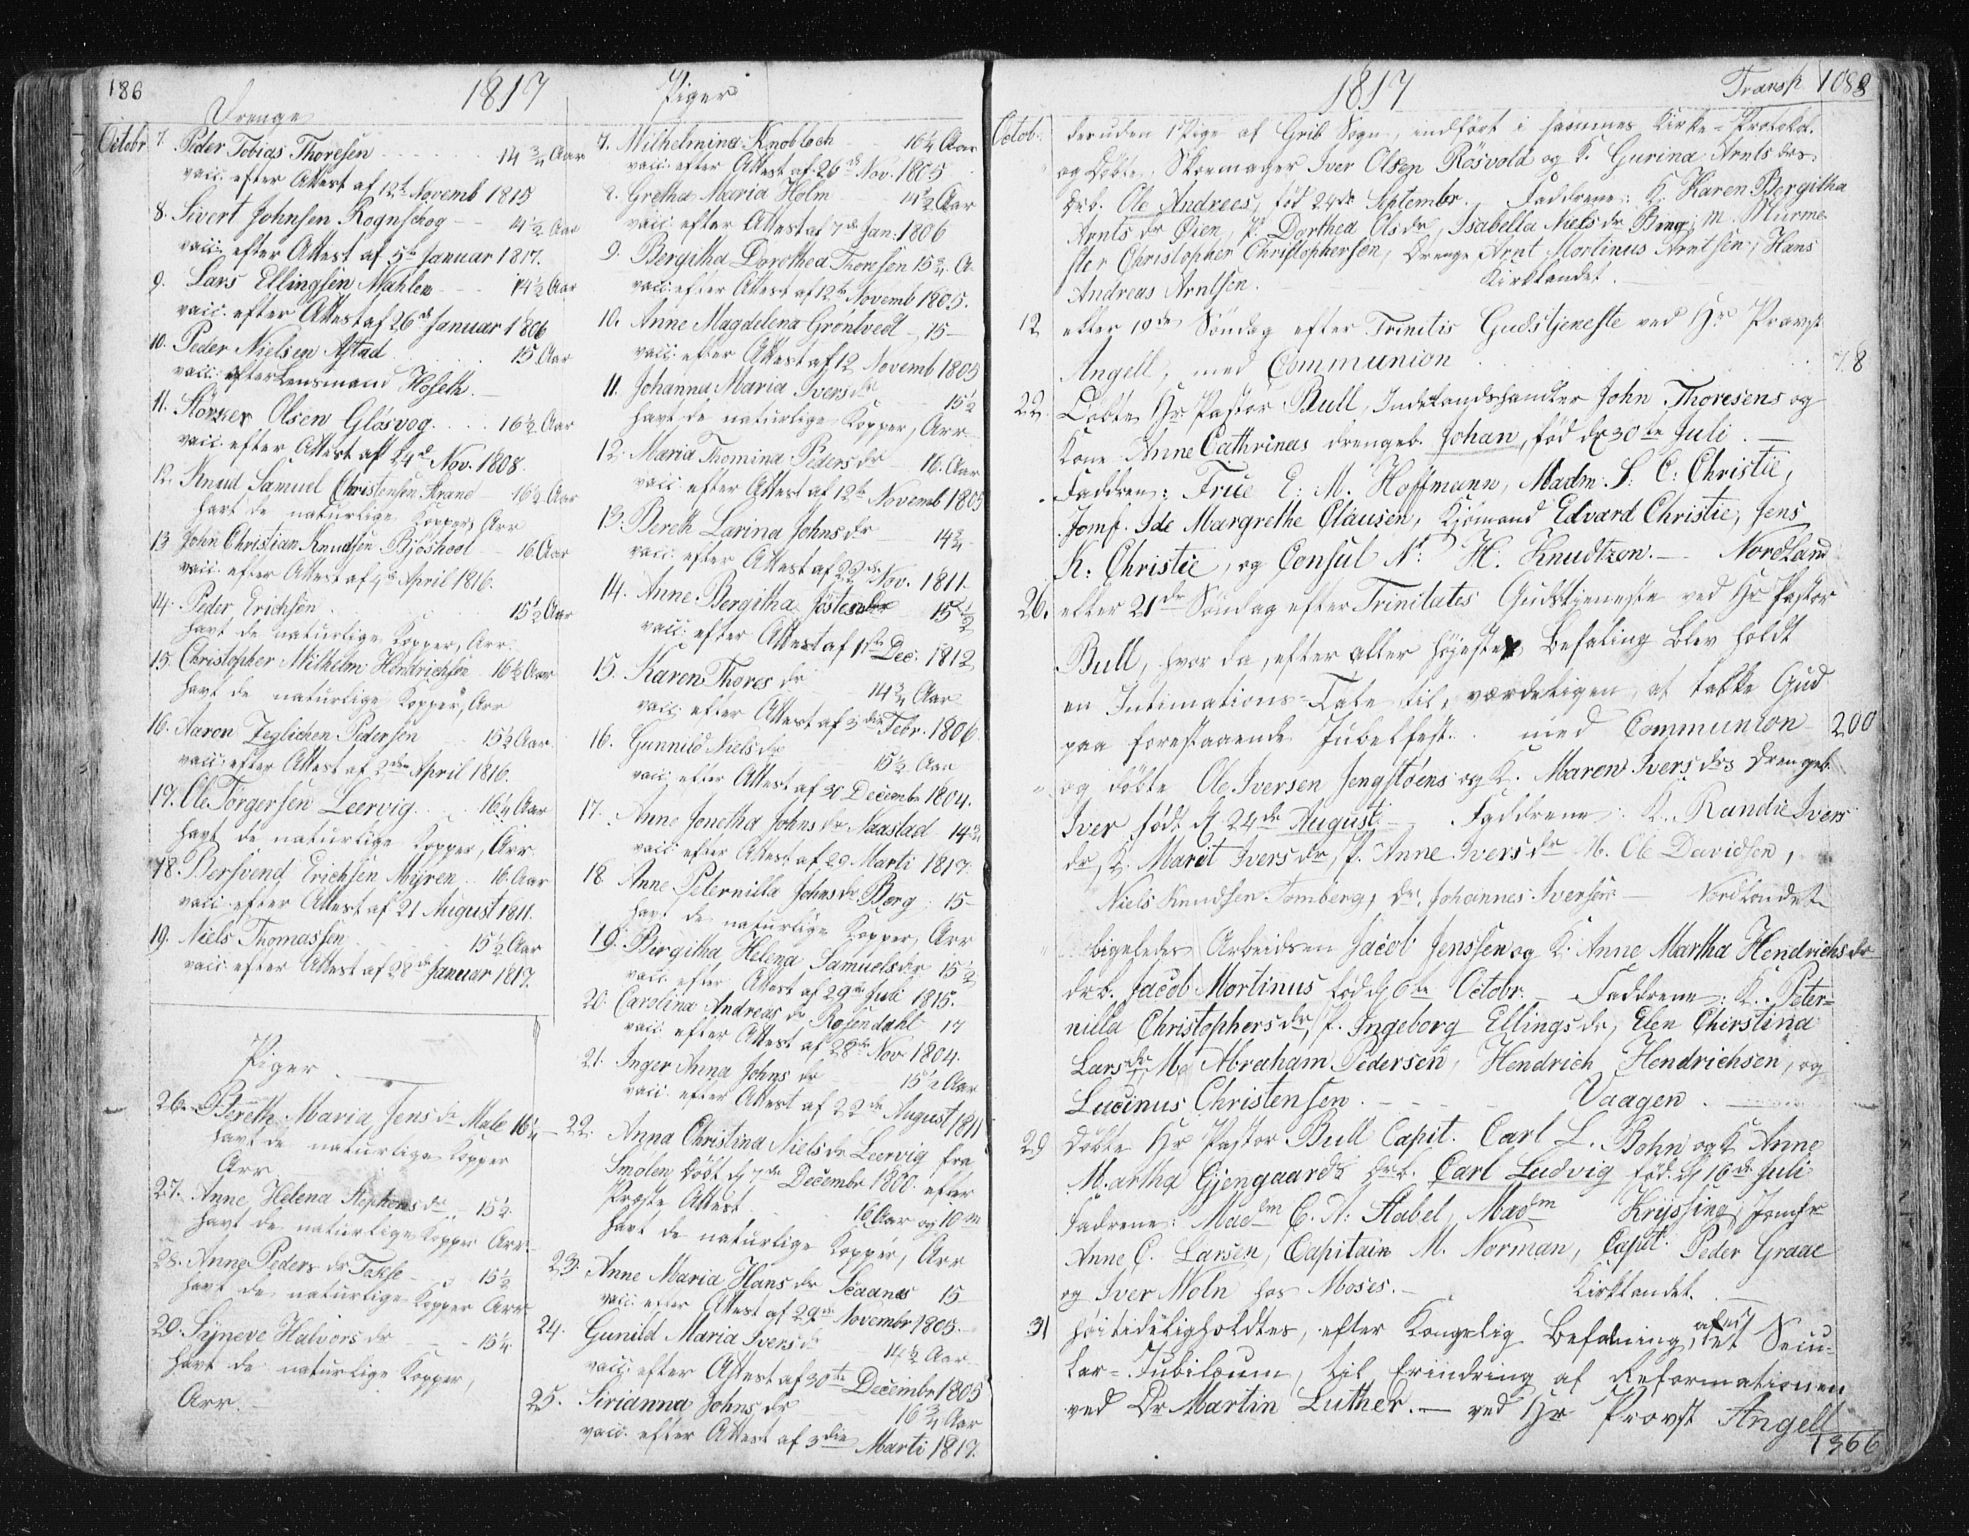 186
1817
Drenge
Octobr 7. Peder Tobias Thoresen 14 3/4 Aar
vacc: efter Attest af 12te Novemb 1815
8. Sivert Johnsen Rognskog 14 1/2 Aar
vacc: efter Attest af 5te Januar 1817.
9. Lars Ellingsen Mahlen 14 1/2 Aar
vacc: efter Attest af 26de Januar 1806
10. Peder Nielsen Astad 15 Aar
vacc: efter Lensmand Hoseth.
11. Störker Olsen Glösvog 16 1/2 Aar
vacc: efter Attest af 24d Nov. 1808.
12. Knud Samuel Christensen Strand 16 1/2 Aar
havt de naturlige Kopper, Arr
13 John Christian Knudsen 16 Aar
vacc: efter Attest af April 1816.
14. Peder Erichsen 15 1/2 Aar
havt de naturlige Kopper, Arr.
15. Christopher Wilhelm Hendrichsen 16 1/2 Aar
havt de naturlige Kopper, Arr
16. Aaron Zeglichen Pedersen 15 1/2 Aar
vacc: efter Attest af 2den April 1816.
17. Ole Torgersen Leervig 16 1/4 Aar
havt de naturlige Kopper, Arr
18. Bersvend Erichsen Myren 16 Aar
vacc: efter Attest af 21 August 1811.
19. Niels Thomassen 15 1/2 Aar
vacc: efter Attest af 28de Januar 1817.
Piger
26. Bereth Maria Jens dr Male 16 1/4
havt de naturlige Kopper
Arr
27. Anne Helena Stephens dr 15 1/2.
havt de naturlige Kopper Arr
28. Anne Peders dr Takse 15 1/2
havt de naturlige Kopper Arr
29. Syneve Halvors dr 15 1/4
havt de naturlige Kopper,
Arr.
Piger
7. Wilhelmina Knobloch 16 1/4 Aar
vacc: efter Attest af 26de Nov. 1805
8. Gretha Maria Holm 14 1/2 Aar
vacc: efter Attest af 7de Jan. 1806
9. Bergitha Dorothea Thoresen 15 3/4 A.
vacc: efter Attest af 12te Novemb 1805.
10. Anne Magdelena Gröntvedt 15
vacc: efter Attest af 12 Novemb 1805
11. Johanna Maria Ivers dr 15 1/2
havt de naturlige Kopper, Arr
12. Maria Thomina Peders dr 16 Aar
vacc: efter Attest af 12te Novemb 1805
13. Bereth Larina Johns dr 14 3/4
vacc: efter Attest af 22de Nov. 1811.
14. Anne Bergitha Jöstens dr 15 1/2
vacc: efter Attest af 11te Dec. 1812
15. Karen Thores dr 14 3/4 Aar
vacc: efter Attest af 3die Febr. 1806
16. Gunnild Niels dr 15 1/2 Aar
vacc: efter Attest af 30 Decembr 1804.
17. Anne Jonetha Johns dr Naastad 14 3/4
vacc: efter Attest af 29. Marti 1817.
18. Anne Peternilla Johns dr Berg 15
havt de naturlige Kopper, Arr
19. Birgitha Helena Samuels dr 15 1/2
vacc: efter Attest af 29de Juli 1815.
20. Carolina Andreas dr Rosendahl 17
vacc: efter Attest af 28de Nov 1804.
21. Inger Anna Johns dr 15 1/2 Aar
vacc: efter Attest af 22de August 1811
22. Anna Christina Niels dr Leervig fra
Smölen, döbt d 7de Decembr 1800. efter
Præste Attest 16 Aar og 10 m
havt de naturlige Kopper, Arr
23. Anne Maria Hans dr 15
vacc: efter Attest af 29de Novembr 1805.
24. Gunild Maria Ivers dr 14 1/2 Aar
vacc: efter Attest af 30te Decembr 1805
25. Sirianna Johns dr 16 3/4 Aar
vacc: efter Attest af 3die Marti 1817.
1817
Transp 1088
Octob. deruden 1 Pige af Grib Sogn, indfört i sammes Kirke-Protokol.
og döbte, Skoemager Iver Olsen Rösvold og K. Gurina Arnts drs
Drb. Ole Andrees, föd 24de Septembr. Faddrene: K. Karen Bergitha
Arnts dr Öien, P. Dorthea Ols dr, Isabella Niels dr Berg; M. Murme-
ster Christopher Christophersen, Drenge Arnt Mortinus Arntsen, Hans
Andreas Arntsen. Kirklandet.
12 eller 19de Söndag efter Trinitis Gudstjeneste ved Hr Provst
Angell, med Communion 78
22 Döbte Hr Pastor Bull, Indelandshandler John Thoresens og
Kone Anne Cathrinas drengeb. Johan, föd d 30te Juli.
Faddren: Frue E: M. Hoffmann, Madm. S: C: Christie,
Jomf. Ide Margrethe Clausen, Kjömand Edvard Christie, Jens
K: Christie, og Consul N: H. Knudtzon. Nordland
26. eller 21de Söndag efter Trinitates Gudstjeneste ved Hr Pastor
Bull, hvor da, efter aller höjeste Befaling blev holdt
en Intimations-Tale til, værdeligen at takke Gud
paa forestaaende Jubelfest. med Communion 200
og döbte Ole Iversen Jengstöens og K. Maren Ivers drs Drengeb.
Iver födt d 24de August. Faddrene: K. Randie Ivers
dr, K. Marit Ivers dr, P. Anne Ivers dr M. Ole Davidsen,
Niels Knudsen Tomberg, Dr. Johannes Iversen Nordlandet
ligeledes Arbeidsm Jacob Jenssen og K. Anne Martha Hendrichs dr
drb. Jacob Mortinus föd d 6te Octobr. Faddrene: K. Peter-
nilla Christophers dr, P. Ingeborg Ellings dr, Elen Chirstina
Lars dr, M. Abraham Pedersen, Hendrich Hendrichsen, og
Lucinus Christensen. Vaagen
29 Döbte Hr Pastor Bull Capit. Carl L. Bohn og K Anne
Martha Gjengaards Drb. Carl Ludvig föd. d 16de Juli
Fadrene: Madm C. N. Stabel, Madm Kryssing, Jomfr
Anne C. Larsen, Capitain M. Norman, Capit. Peder Graae
og Iver Woln hos Moses. Kirklandet.
31 höitideligholdtes, efter Kongelig Befalning, det Secu-
lar-Jubilæum, til Erindring af Reformationen
ved Dr Martin Luther. ved Hr Provst Angell
1366